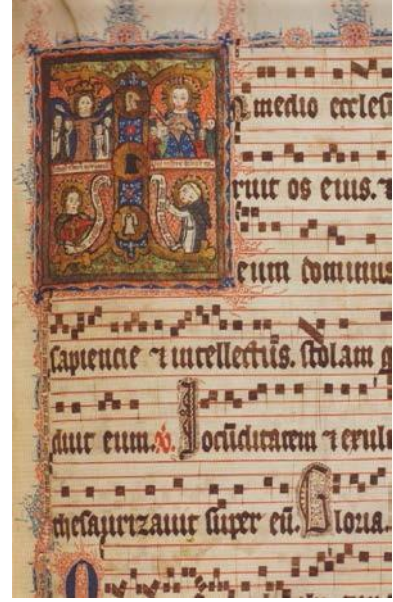 n medio eccles
ruit os eius. ⁊
eum dominus
sapiencie ⁊ intellectus. stolam g
duit eum. ℣. Jocūditatem ⁊ exul
thesaurizauit super eū. Gloria.